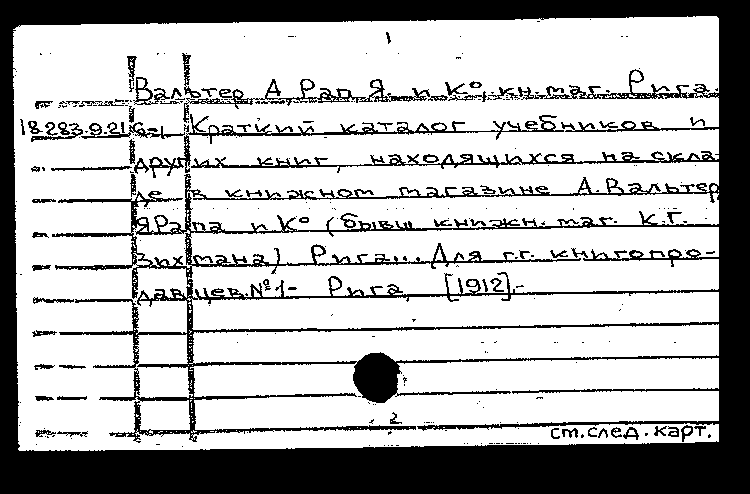 1
Вальтер А, Рап Я. и К°, кн. маг. Рига.
18.283.9.21 Краткий каталог учебников и
других книг, находящихся на скла-
де в книжном магазине А. Вальтер
Я Рапа и К° (бывш книжн. маг. К.Г.
Зихмана). Рига... Для г.г. книгопро-
давцев. №1- Рига, [1912].-
2
ст. след. карт.